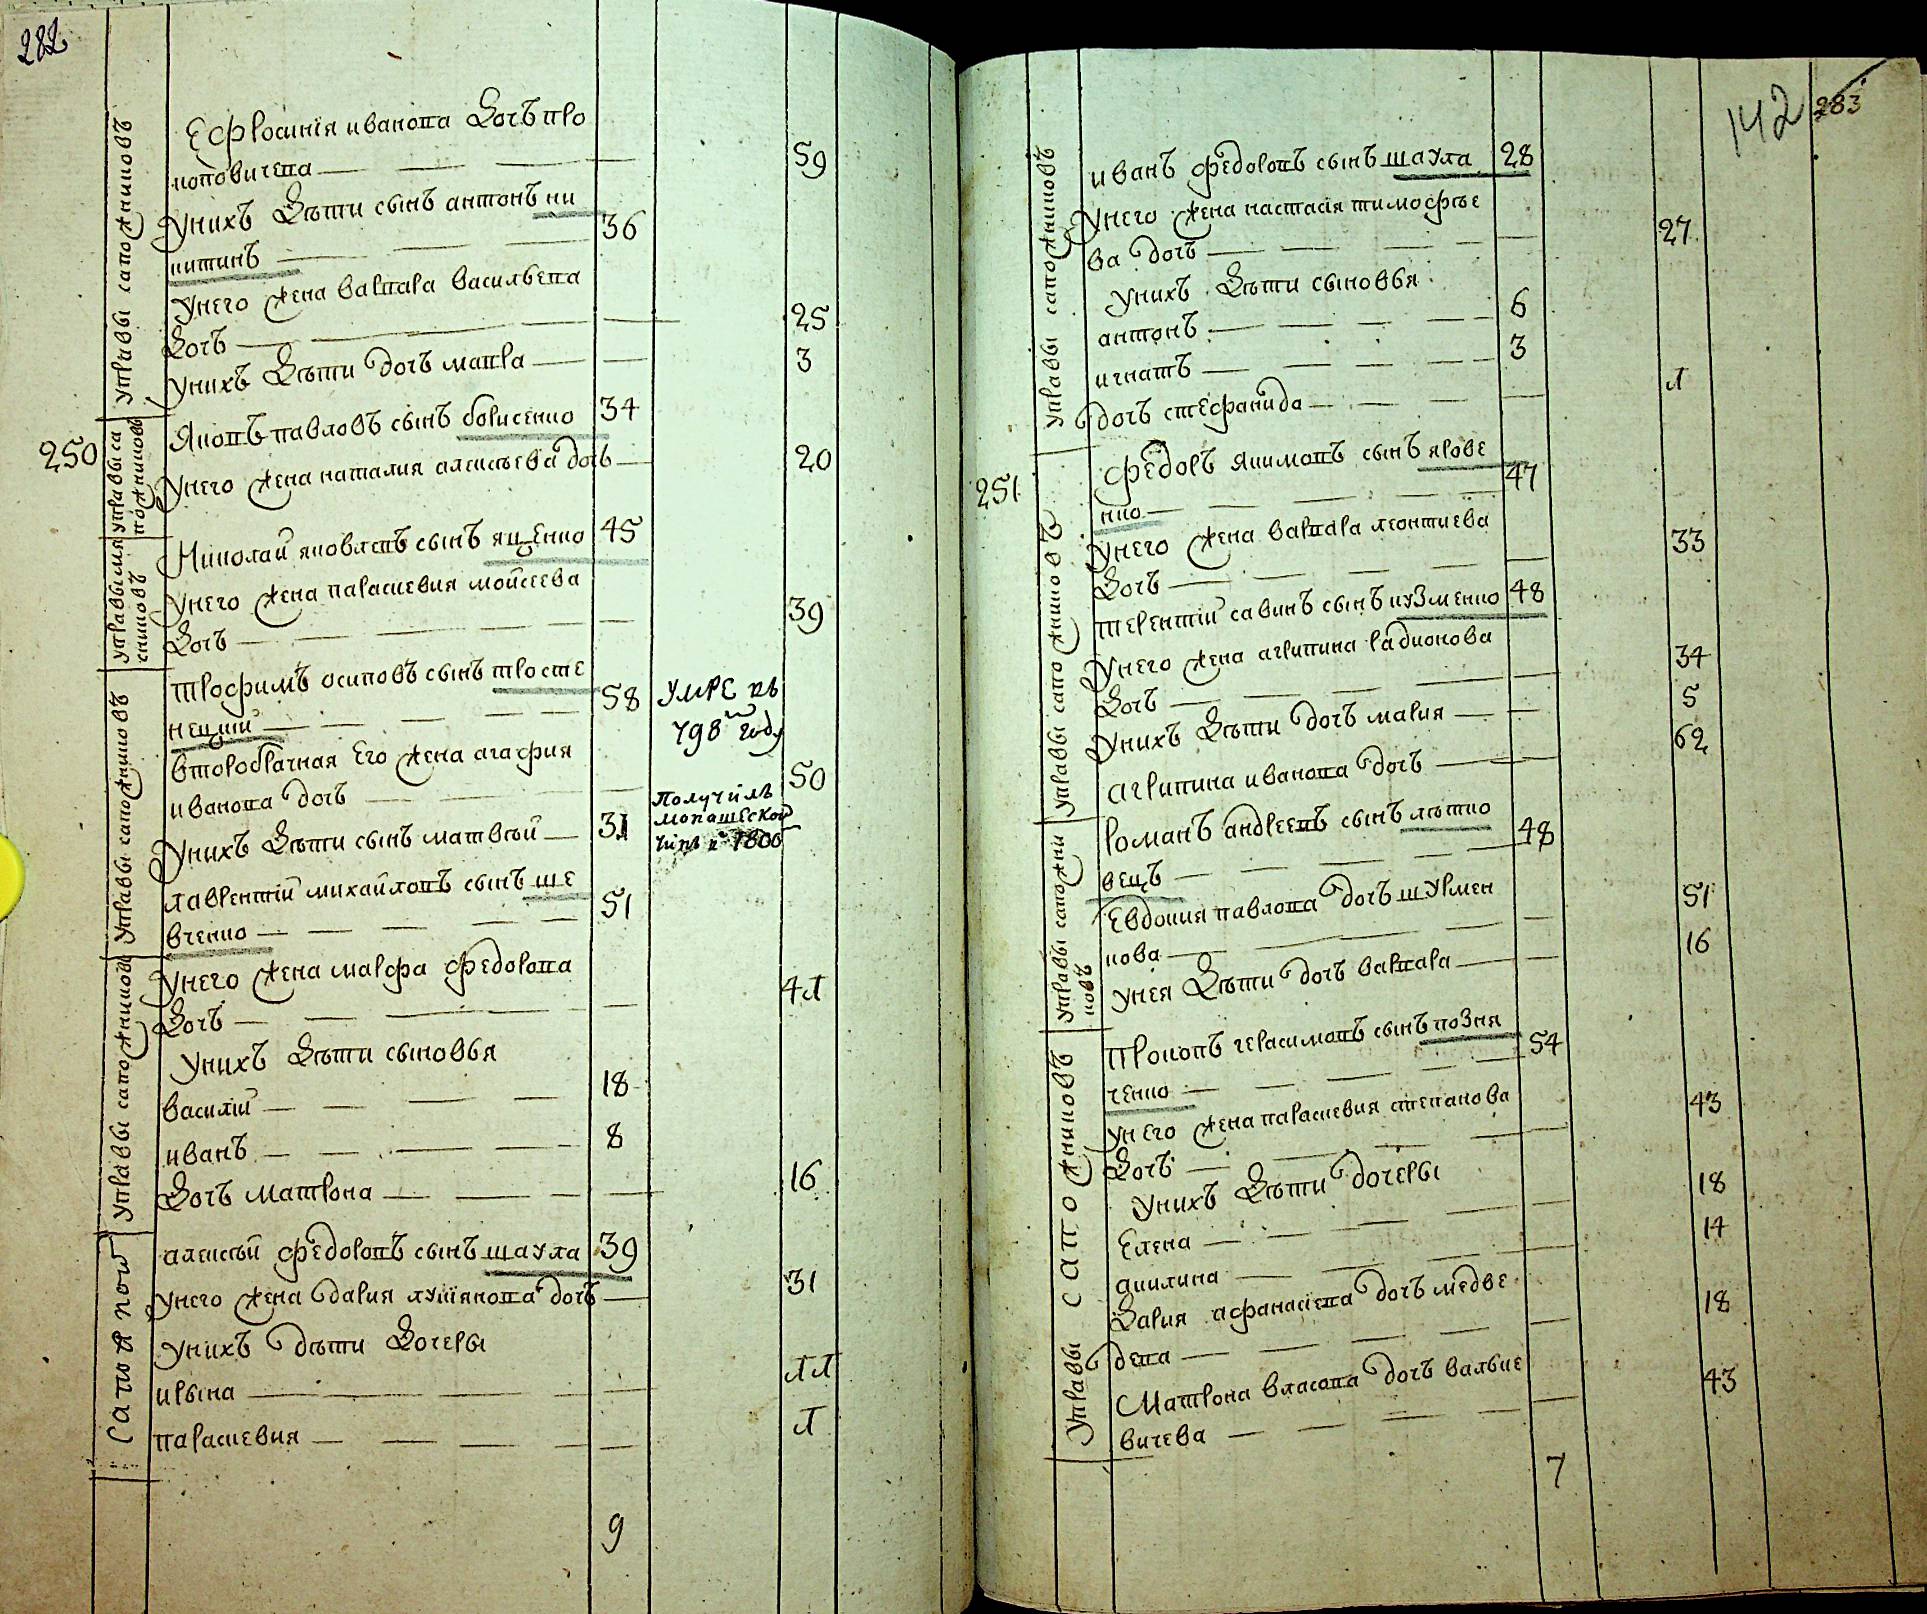 282
управы сапожниковъ
Ефросинїя иванова дочъ про
коповичева 59
Унихъ дѣти сынъ антонъ ни
китинъ 36
Унего жена варвара васильева
дочь 25
Унихъ дѣти дочь мавра 3
250
управы сапожниковъ
Яковъ павловъ сынъ борисенко 34
Унего жена наталия алексѣева дочь 20
управы мясниковъ
Николай яковлевъ сынъ ященко 45
Унего жена параскевия мойсеева
дочь 39
управы сапожниковъ
Трофимъ осиповъ сынъ тросте
нецкий 58
умре въ
798м году
второбрачная Его жена агафия
иванова дочь 50
Унихъ дѣти сынъ матвѣй 31
Получилъ
монашеской
чинъ 1800
лаврентїй михайловъ сынъ ше
вченко 51
управы сапожниковъ
Унего жена марфа федорова
дочь 41
Унихъ дѣти сыновья
василїй 18
иванъ 8
дочь матрона 16
Сапожков
алексѣй федоровъ сынъ шаула 39
Унего жена дария лукїянова дочь 31
Унихъ дѣти дочери
ирына 11
параскевия 1
9
142 283
управы сапожниковъ
иванъ федоровъ сынъ шаула 28
Унего жена настасія тимофѣе
ва дочь 27
Унихъ дѣти сыновья
антонъ 6
игнатъ 3
дочь стефанида 1
251
управы сапожниковъ
Федоръ якимовъ сынъ ярове
нко 47
Унего жена варвара леонтиева
дочь 33
терентїй савинъ сынъ кузменко 48
Унего жена агрипина радионова
дочь 34
Унихъ дѣти дочь мария 5
агрипина иванова дочь 62
управы сапожниковъ
романъ андреевъ сынъ лѣтко
вецъ 48
Евдокия павлова дочь шурмен
кова 51
унея дѣти дочь варвара 16
управы сапожниковъ
Прокопъ герасимовъ сынъ позня
ченко 54
унего жена параскевия степанова
дочь 43
Унихъ дѣти дочеры
Елена 18
акилина 14
дария афанасієва дочь медве
дева 18
Матрона власова дочь валъке
вичева 43
7